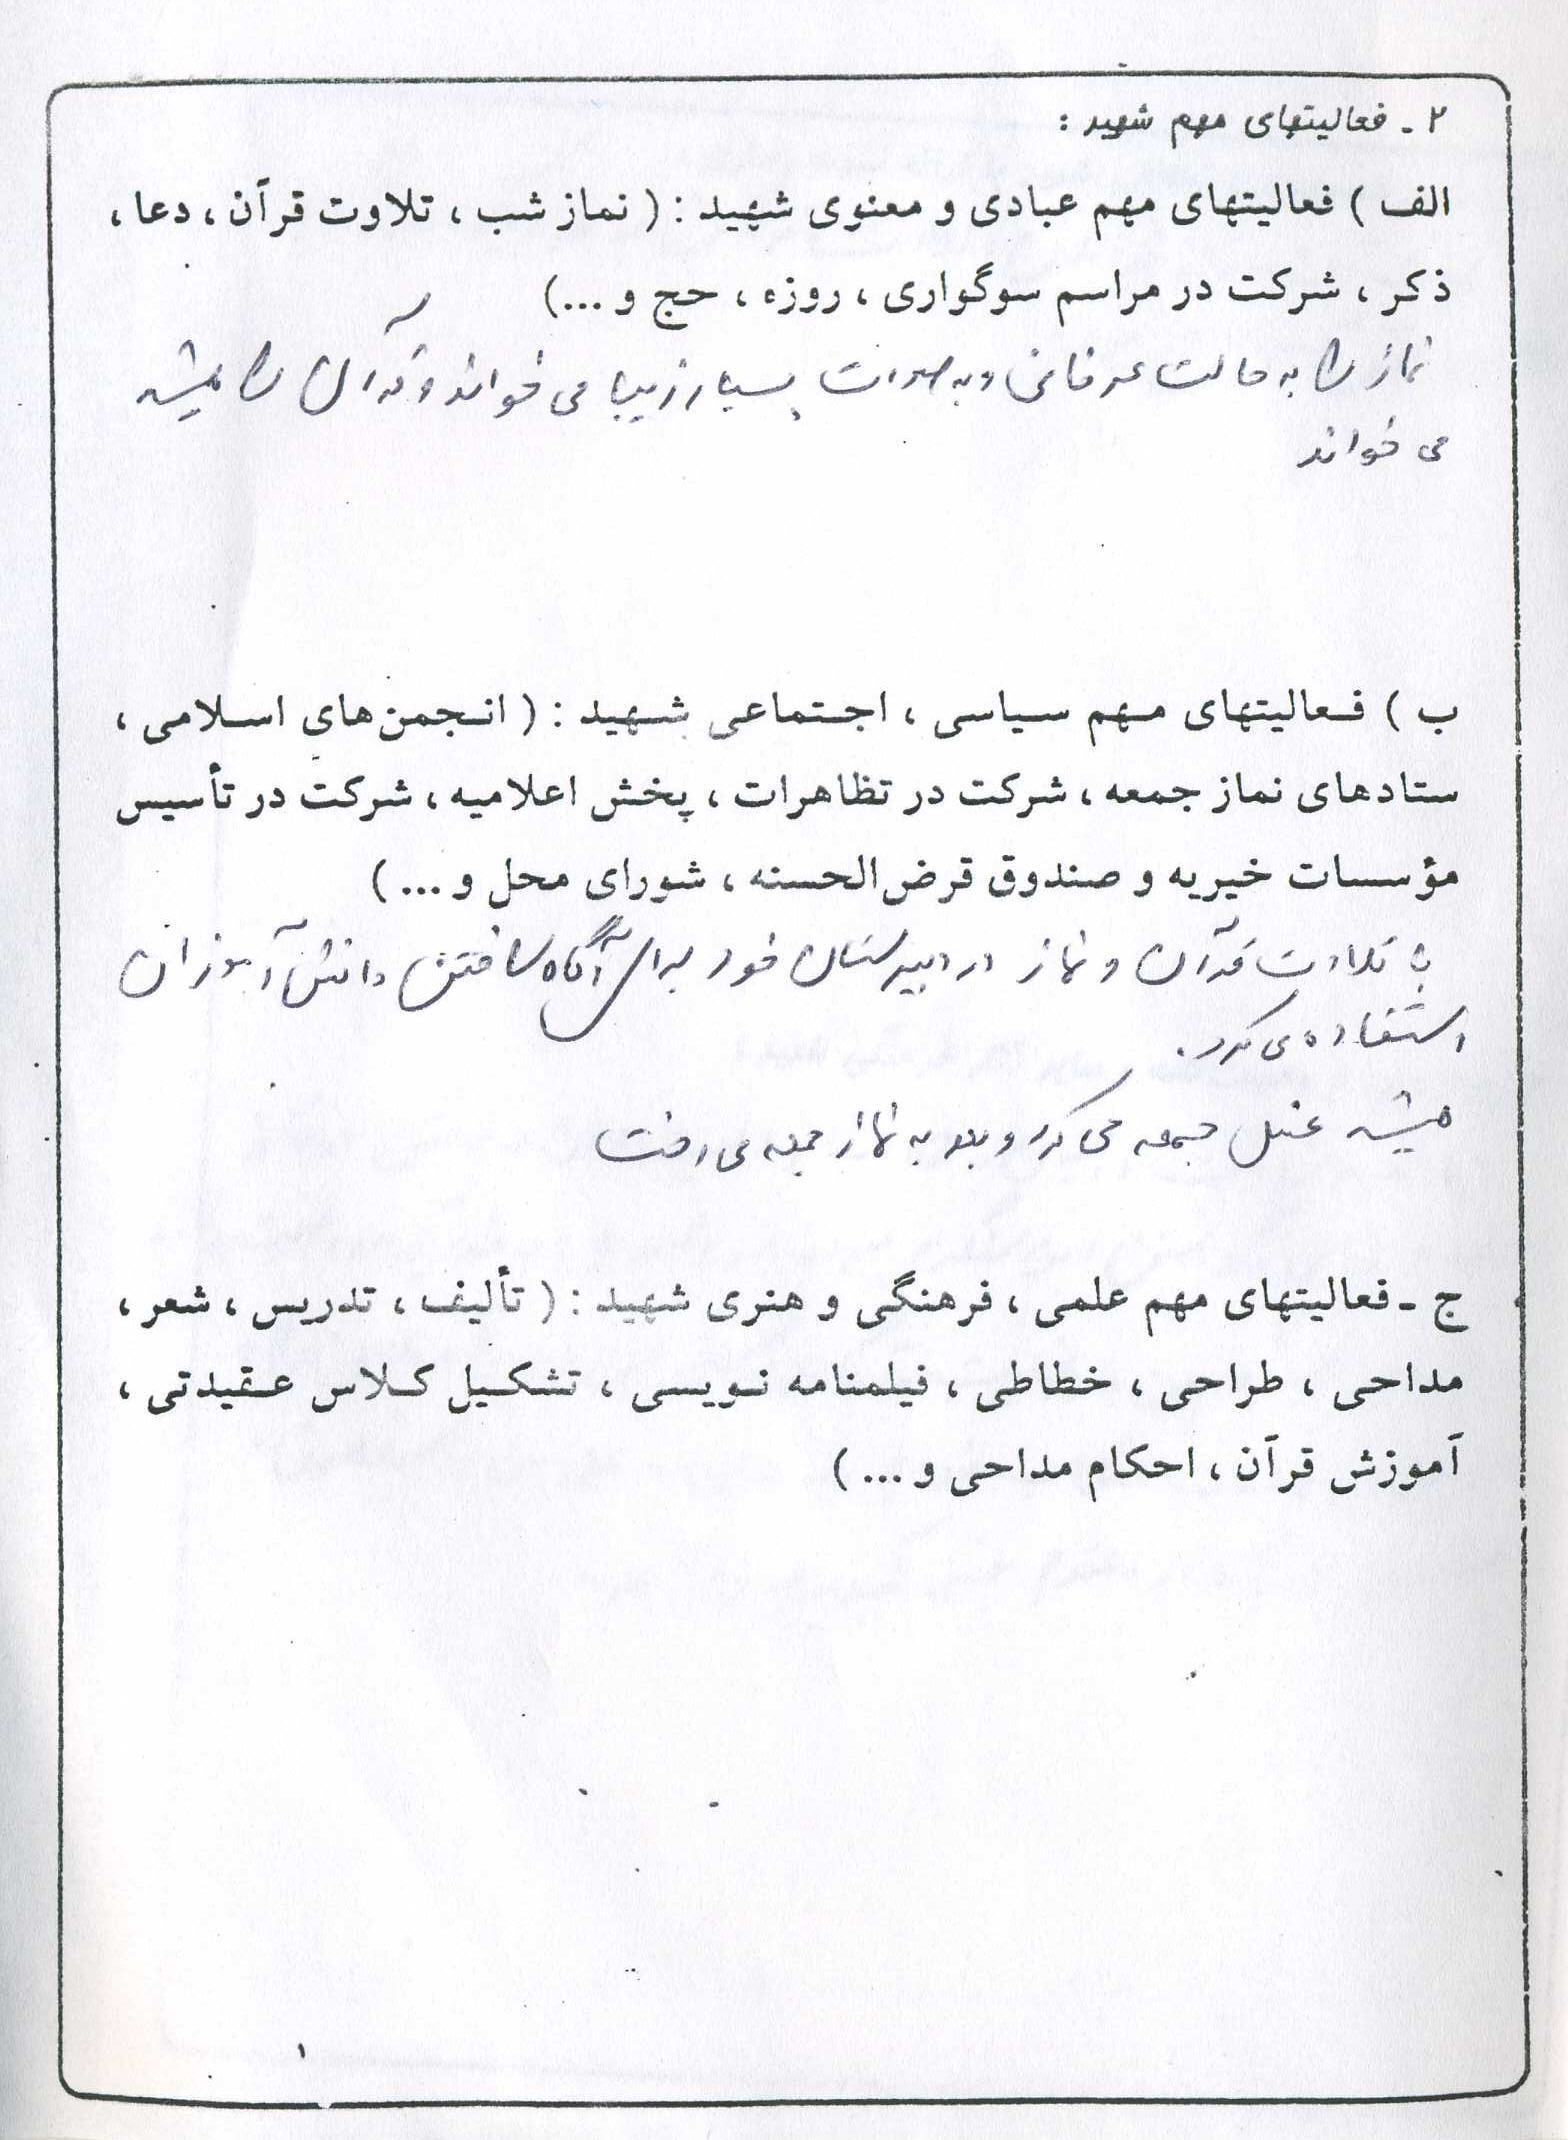 ۲ ـ فعالیتهای مهم شهید :
الف ) فعالیتهای مهم عبادی و معنوی شهید : ( نماز شب ، تلاوت قرآن ، دعا ،
ذکر ، شرکت در مراسم سوگواری ، روزه ، حج و ...)
نماز را به حالت عرفانی و به صورت بسیار زیبا می خواند و قرآن را همیشه
می خواند
ب ) فعالیتهای مهم سیاسی ، اجتماعی شهید : ( انجمن‌های اسلامی ،
ستادهای نماز جمعه ، شرکت در تظاهرات ، پخش اعلامیه ، شرکت در تأسیس
مؤسسات خیریه و صندوق قرض‌الحسنه ، شورای محل و ... )
با تلاوت قرآن و نماز در دبیرستان خود برای آگاه ساختن دانش آموزان
استفاده می کرد .
همیشه غسل جمعه می کرد و بعد به نماز جمعه می رفت
ج ـ فعالیتهای مهم علمی ، فرهنگی و هنری شهید : ( تألیف ، تدریس ، شعر ،
مداحی ، طراحی ، خطاطی ، فیلمنامه نویسی ، تشکیل کلاس عقیدتی ،
آموزش قرآن ، احکام مداحی و ... )